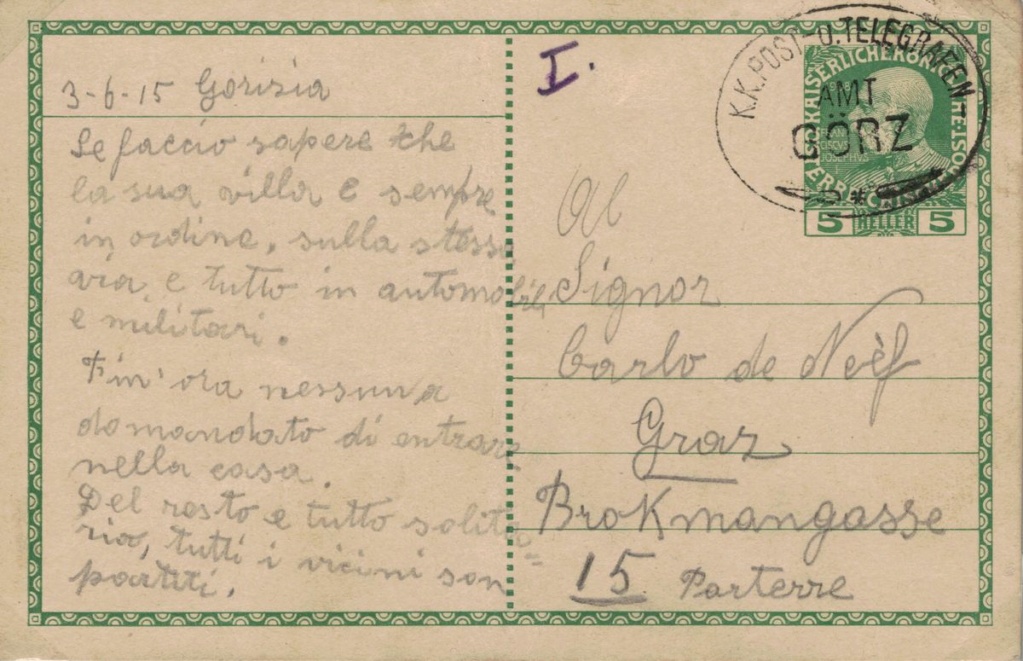 3-6-15 Gorizia
Le faccio sapere che
la sua villa e sempre
in ordine, sulla stessa
via, e tutto in automobili
e militari.
Fin' ora nessuna
domandato di entrare
nella casa.
Del resto e tutto solita=
rio, tutti i vicini son
partiti.
I.
K.K. POST- U. TELEGRAFEN-
AMT
GÖRZ
*
5 HELLER 5
Al
Signor
Carlo de Nèèf
Graz
Brokmangasse
15 Parterre